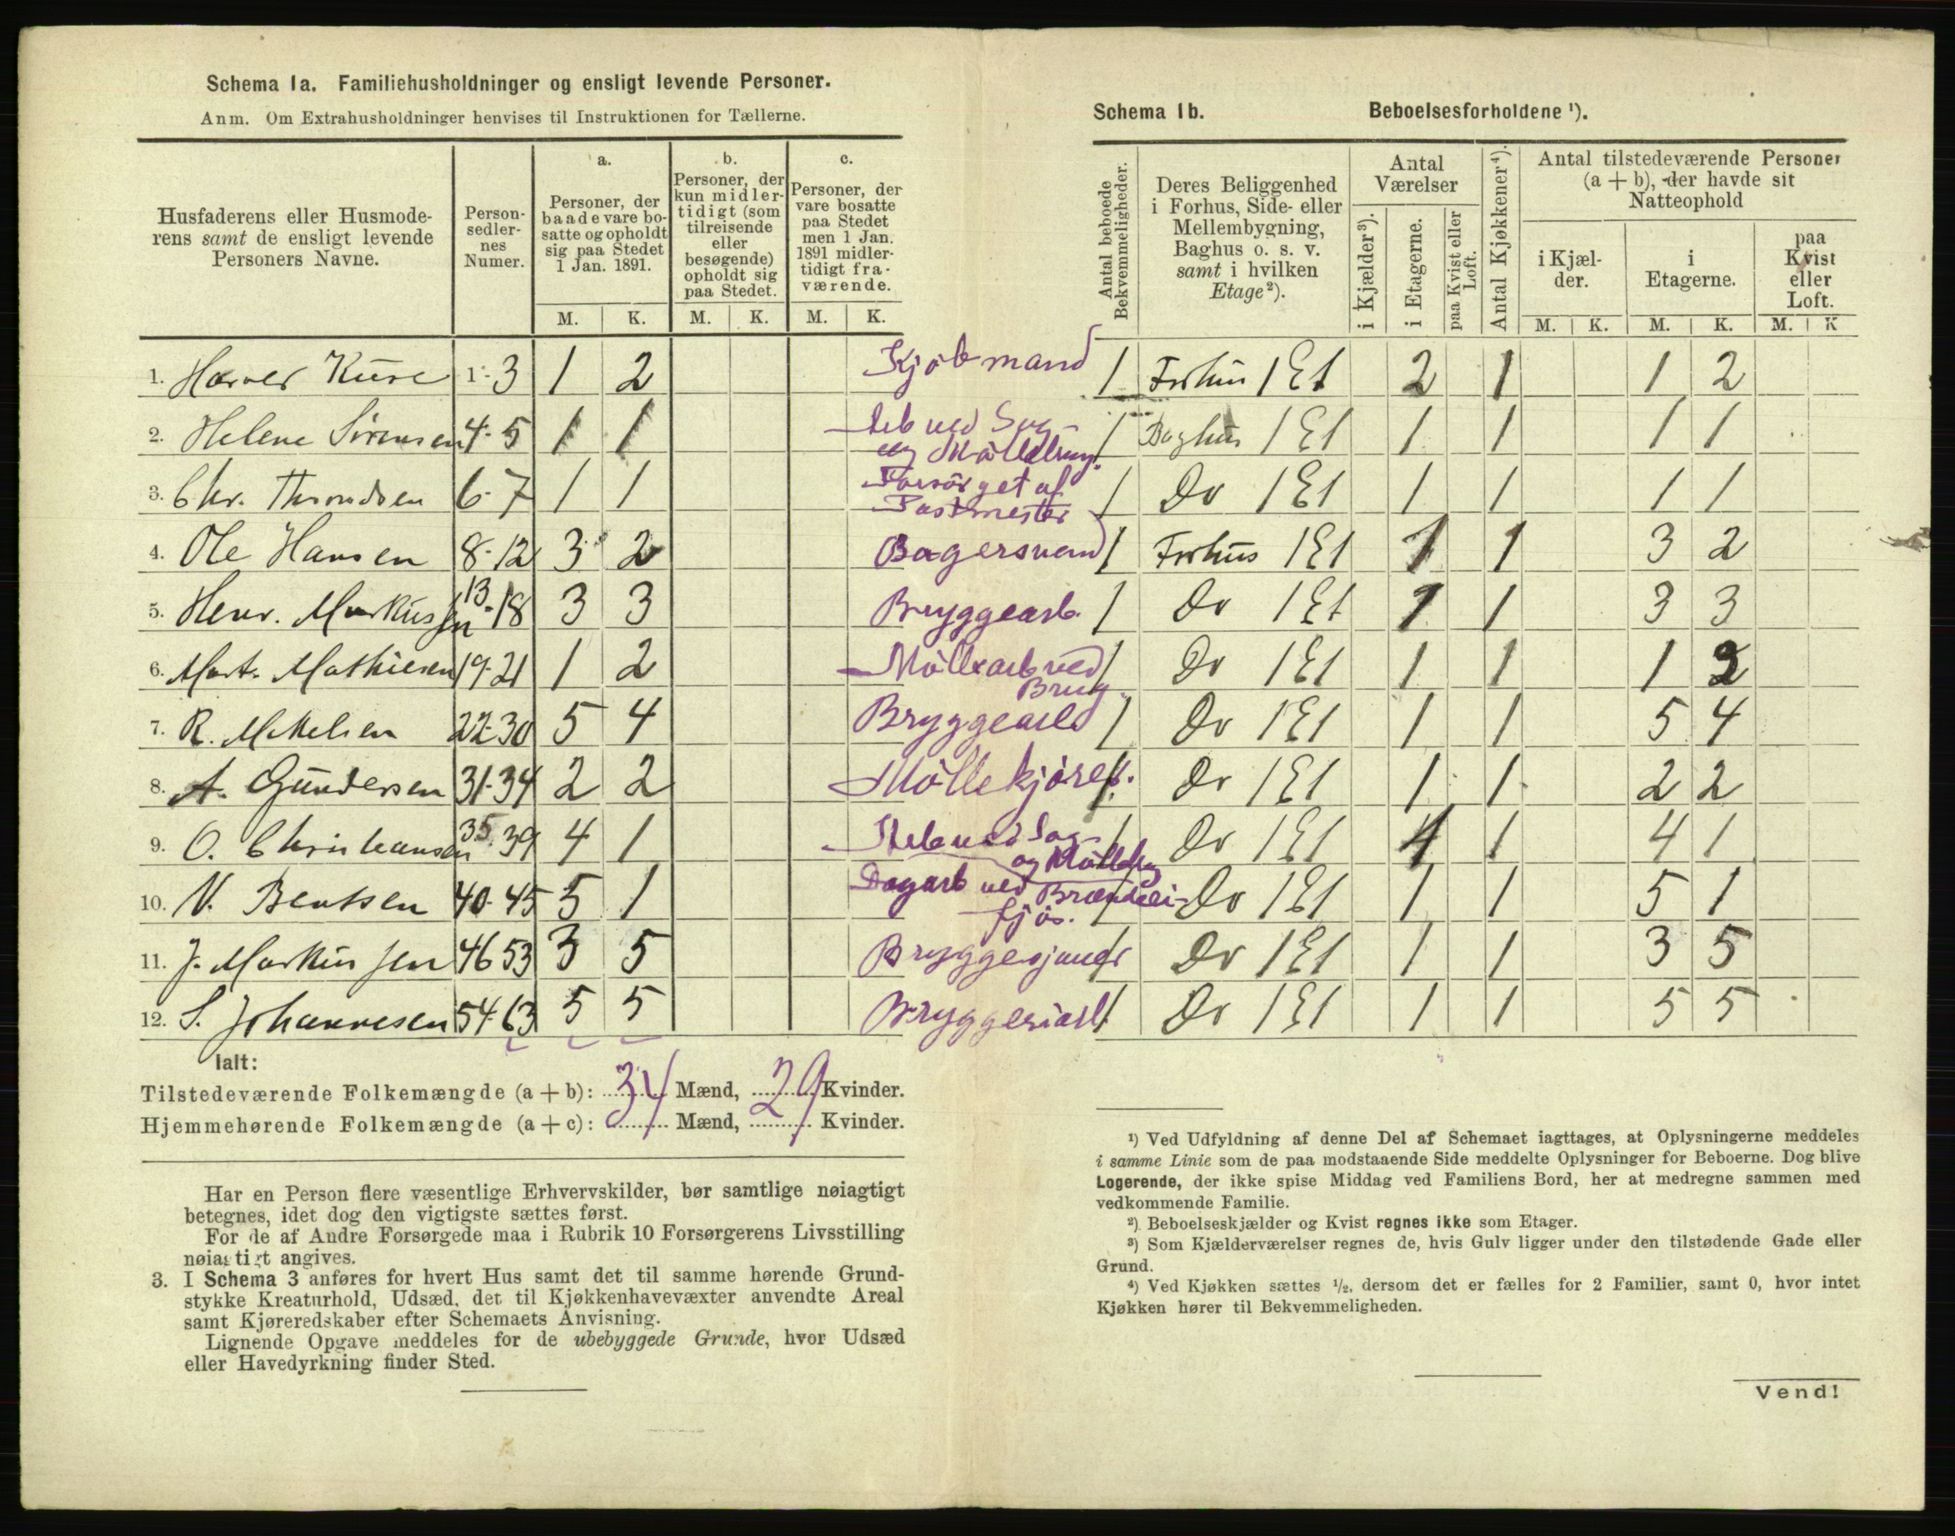 Schema 1a. Familiehusholdninger og ensligt levende Personer.
Anm. Om Extrahusholdninger henvises til Instruktionen for Tællerne.
Husfaderens eller Husmode-
rens samt de ensligt levende
Personers Navne.
Person-
sedler-
nes
Numer.
a.
Personer, der
baade vare bo-
satte og opholdt
sig paa Stedet
1 Jan. 1891.
b.
Personer, der
kun midler-
tidigt (som
tilreisende
eller
besøgende)
opholdt sig
paa Stedet.
c.
Personer, der
vare bosatte
paa Stedet
men 1 Jan.
1891 midler-
tidigt fra-
værende.
M. K. M. K. M. K.
1. Kure 1-3 1 2 Kjøbmand
2. Helene Sörensen 4-5 1 1
3. Chr. Throndsen 6-7 1 1 Forsörget af Postmester
4. Ole Hansen 8-12 3 2 Bagersvend
5. Henr. Markussen 13-18 3 3 Bryggearb.
6. Mart. Mathiesen 19-21 1 2 Möllearb ved Brug.
7. R. Mikelsen 22-30 5 4 Bryggearb
8. A. Gundersen 31-34 2 2 Möllekjörer.
9. O. Christiansen 35-39 4 1
10. N. Bentsen 40-45 5 1 Dagarb ved
11. J. Markussen 46 53 3 5
12. S. Johannesen 54-63 5 5
Ialt:
Tilstedeværende Folkemængde (a + b): 34 Mænd, 29 Kvinder.
Hjemmehørende Folkemængde (a + c): Mænd, Kvinder.
Har en Person flere væsentlige Erhvervskilder, bør samtlige nøiagtigt
betegnes, idet dog den vigtigste sættes først.
For de af Andre Forsørgede maa i Rubrik 10 Forsørgerens Livsstilling
nøiagtigt angives.
3. I Schema 3 anføres for hvert Hus samt det til samme hørende Grund-
stykke Kreaturhold, Udsæd, det til Kjøkkenhavevæxter anvendte Areal
samt Kjøreredskaber efter Schemaets Anvisning.
Lignende Opgave meddeles for de ubebyggede Grunde, hvor Udsæd
eller Havedyrkning finder Sted.
Schema 1b. Beboelsesforholdene ¹).
Antal beboede
Bekvemmeligheder.
Deres Beliggenhed
i Forhus, Side- eller
Mellembygning,
Baghus o. s. v.
samt i hvilken
Etage ²).
Antal
Værelser
i Kjælder ³).
i Etagerne.
paa Kvist eller
Loft.
Antal Kjøkkener ⁴).
Antal tilstedeværende Personer
(a + b), der havde sit
Natteophold
i Kjæl-
der.
i
Etagerne.
paa
Kvist
eller
Loft.
M. K. M. K. M. K
1 Forhus 1 Et 2 1 1 2
1 Baghus 1 Et 1 1 1 1
1 Do 1 Et 1 1 1 1
1 Forhus 1 Et 1 1 3 2
1 Do 1 Et 1 1 3 3
1 Do 1 Et 1 1 1 2
1 Do 1 Et 1 1 5 4
1 Do 1 Et 1 1 2 2
1 Do 1 Et 1 4 1
1 Do 1 Et 1 1 5 1
1 Do 1 Et 1 1 3 5
1 Do 1 Et 1 1 5 5
¹) Ved Udfyldning af denne Del af Schemaet iagttages, at Oplysningerne meddeles
i samme Linie som de paa modstaaende Side meddelte Oplysninger for Beboerne. Dog blive
Logerende, der ikke spise Middag ved Familiens Bord, her at medregne sammen med
vedkommende Familie.
²) Beboelseskjælder og Kvist regnes ikke som Etager.
³) Som Kjælderværelser regnes de, hvis Gulv ligger under den tilstødende Gade eller
Grund.
⁴) Ved Kjøkken sættes ¹/₂, dersom det er fælles for 2 Familier, samt 0, hvor intet
Kjøkken hører til Bekvemmeligheden.
Vend!